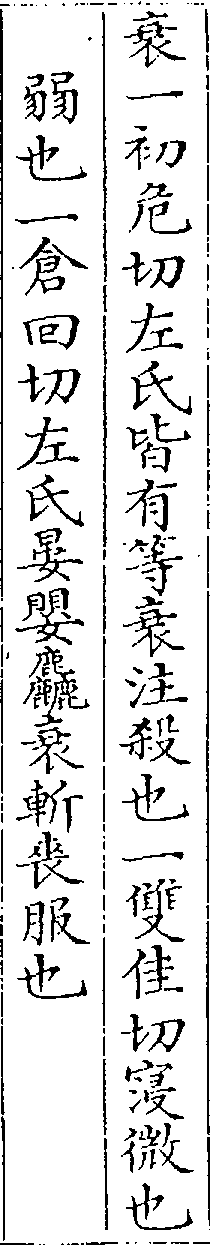 衰一初危切左氏皆有等衰注殺也一雙佳切寖微也
弱也一倉回切左氏晏嬰麤衰斬喪服也